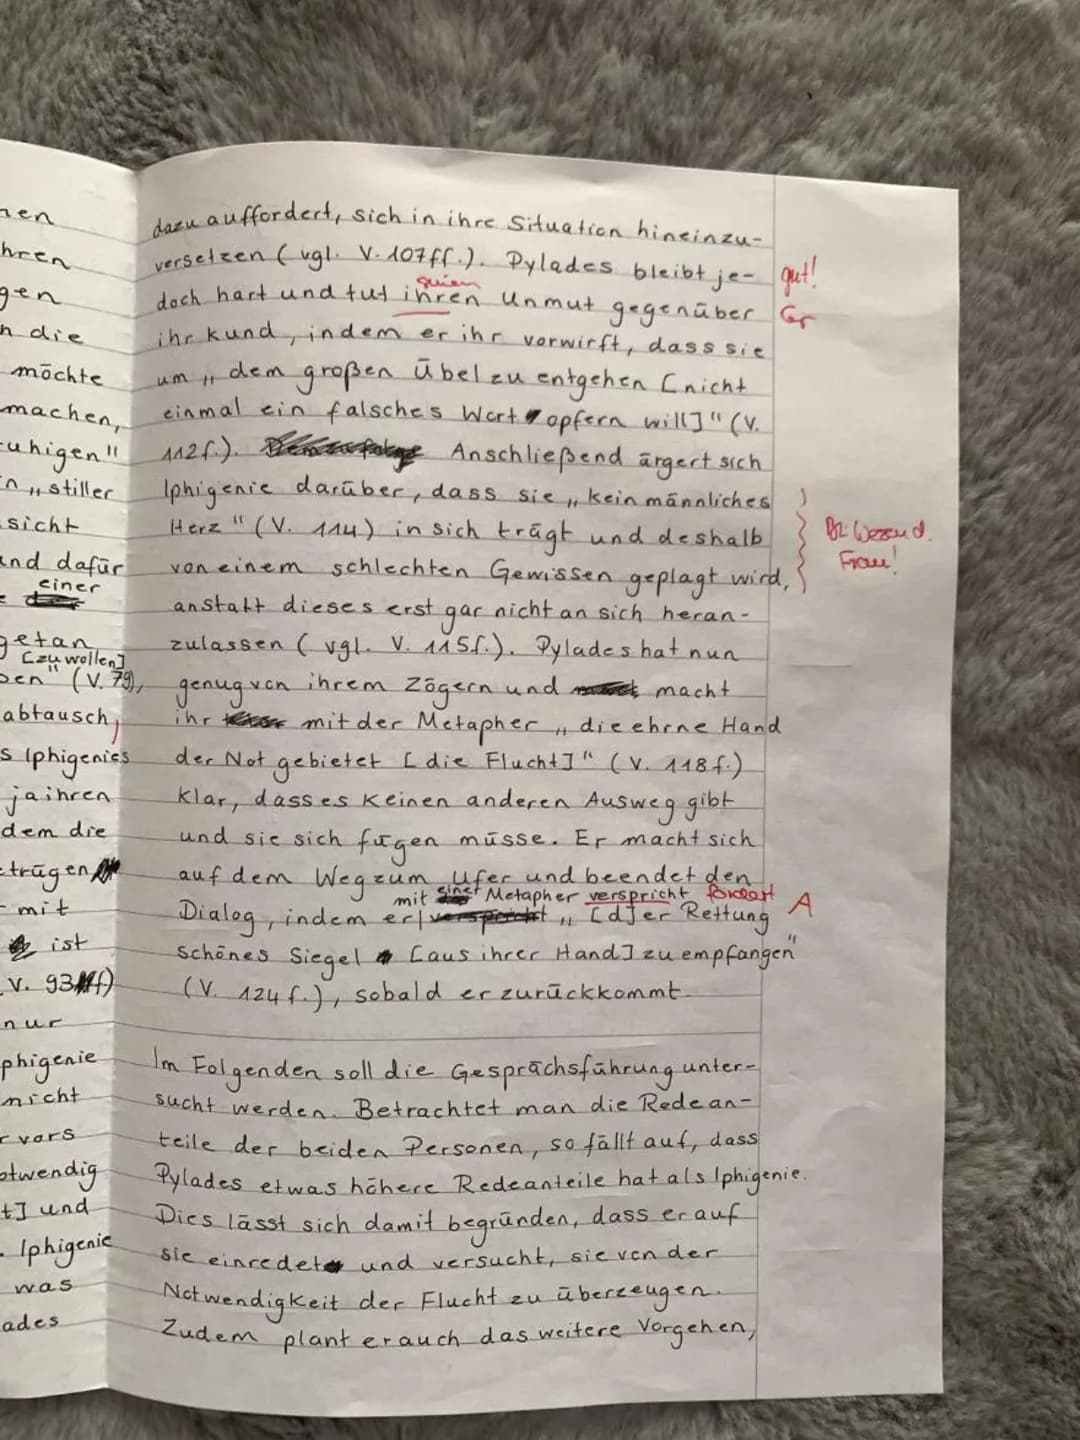 nen
hren
gen
n die
möchte
machen,
ruhigen"
in „stiller
sicht
und dafür
einer
getan
[zu wollen]
ben" (V. 79),
abtausch,
s Iphigenies
ja ihren
dem die
etrügen
mit
ist
V. 93f)
nur
phigenie
nicht
vors
otwendig
t] und
. Iphigenie
was
ades
dazu auffordert, sich in ihre Situation hineinzu-
versetzen (vgl. V. 107ff.). Pylades bleibt je- gut!
seinen
doch hart und tut ihren Unmut gegenüber Gr
ihr kund, indem er ihr vorwirft, dass sie
um „dem großen Übel zu entgehen [nicht
einmal ein falsches Wort opfern will]" (V.
112f.). Anschließend ärgert sich
Iphigenie darüber, dass sie „kein männliches
Herz" (V. 114) in sich trägt und deshalb
von einem schlechten Gewissen geplagt wird,
Frau!
anstatt dieses erst gar nicht an sich heran-
zulassen (vgl. V. 115f.). Pylades hat nun
genug von ihrem Zögern und macht
ihr mit der Metapher „die ehrne Hand
der Not gebietet [die Flucht]" (V. 118f.)
klar, dass es keinen anderen Ausweg gibt
und sie sich fügen müsse. Er macht sich
auf dem Weg zum Ufer und beendet den
mit einer Metapher verspricht fordert
Dialog, indem er verspricht „[d]er Rettung A
schönes Siegel [aus ihrer Hand] zu empfangen"
(V. 124f.), sobald er zurückkommt.
Im Folgenden soll die Gesprächsführung unter-
sucht werden. Betrachtet man die Redean-
teile der beiden Personen, so fällt auf, dass
Pylades etwas höhere Redeanteile hat als Iphigenie.
Dies lässt sich damit begründen, dass er auf
sie einredet und versucht, sie von der
Notwendigkeit der Flucht zu überzeugen.
Zudem plant er auch das weitere Vorgehen,